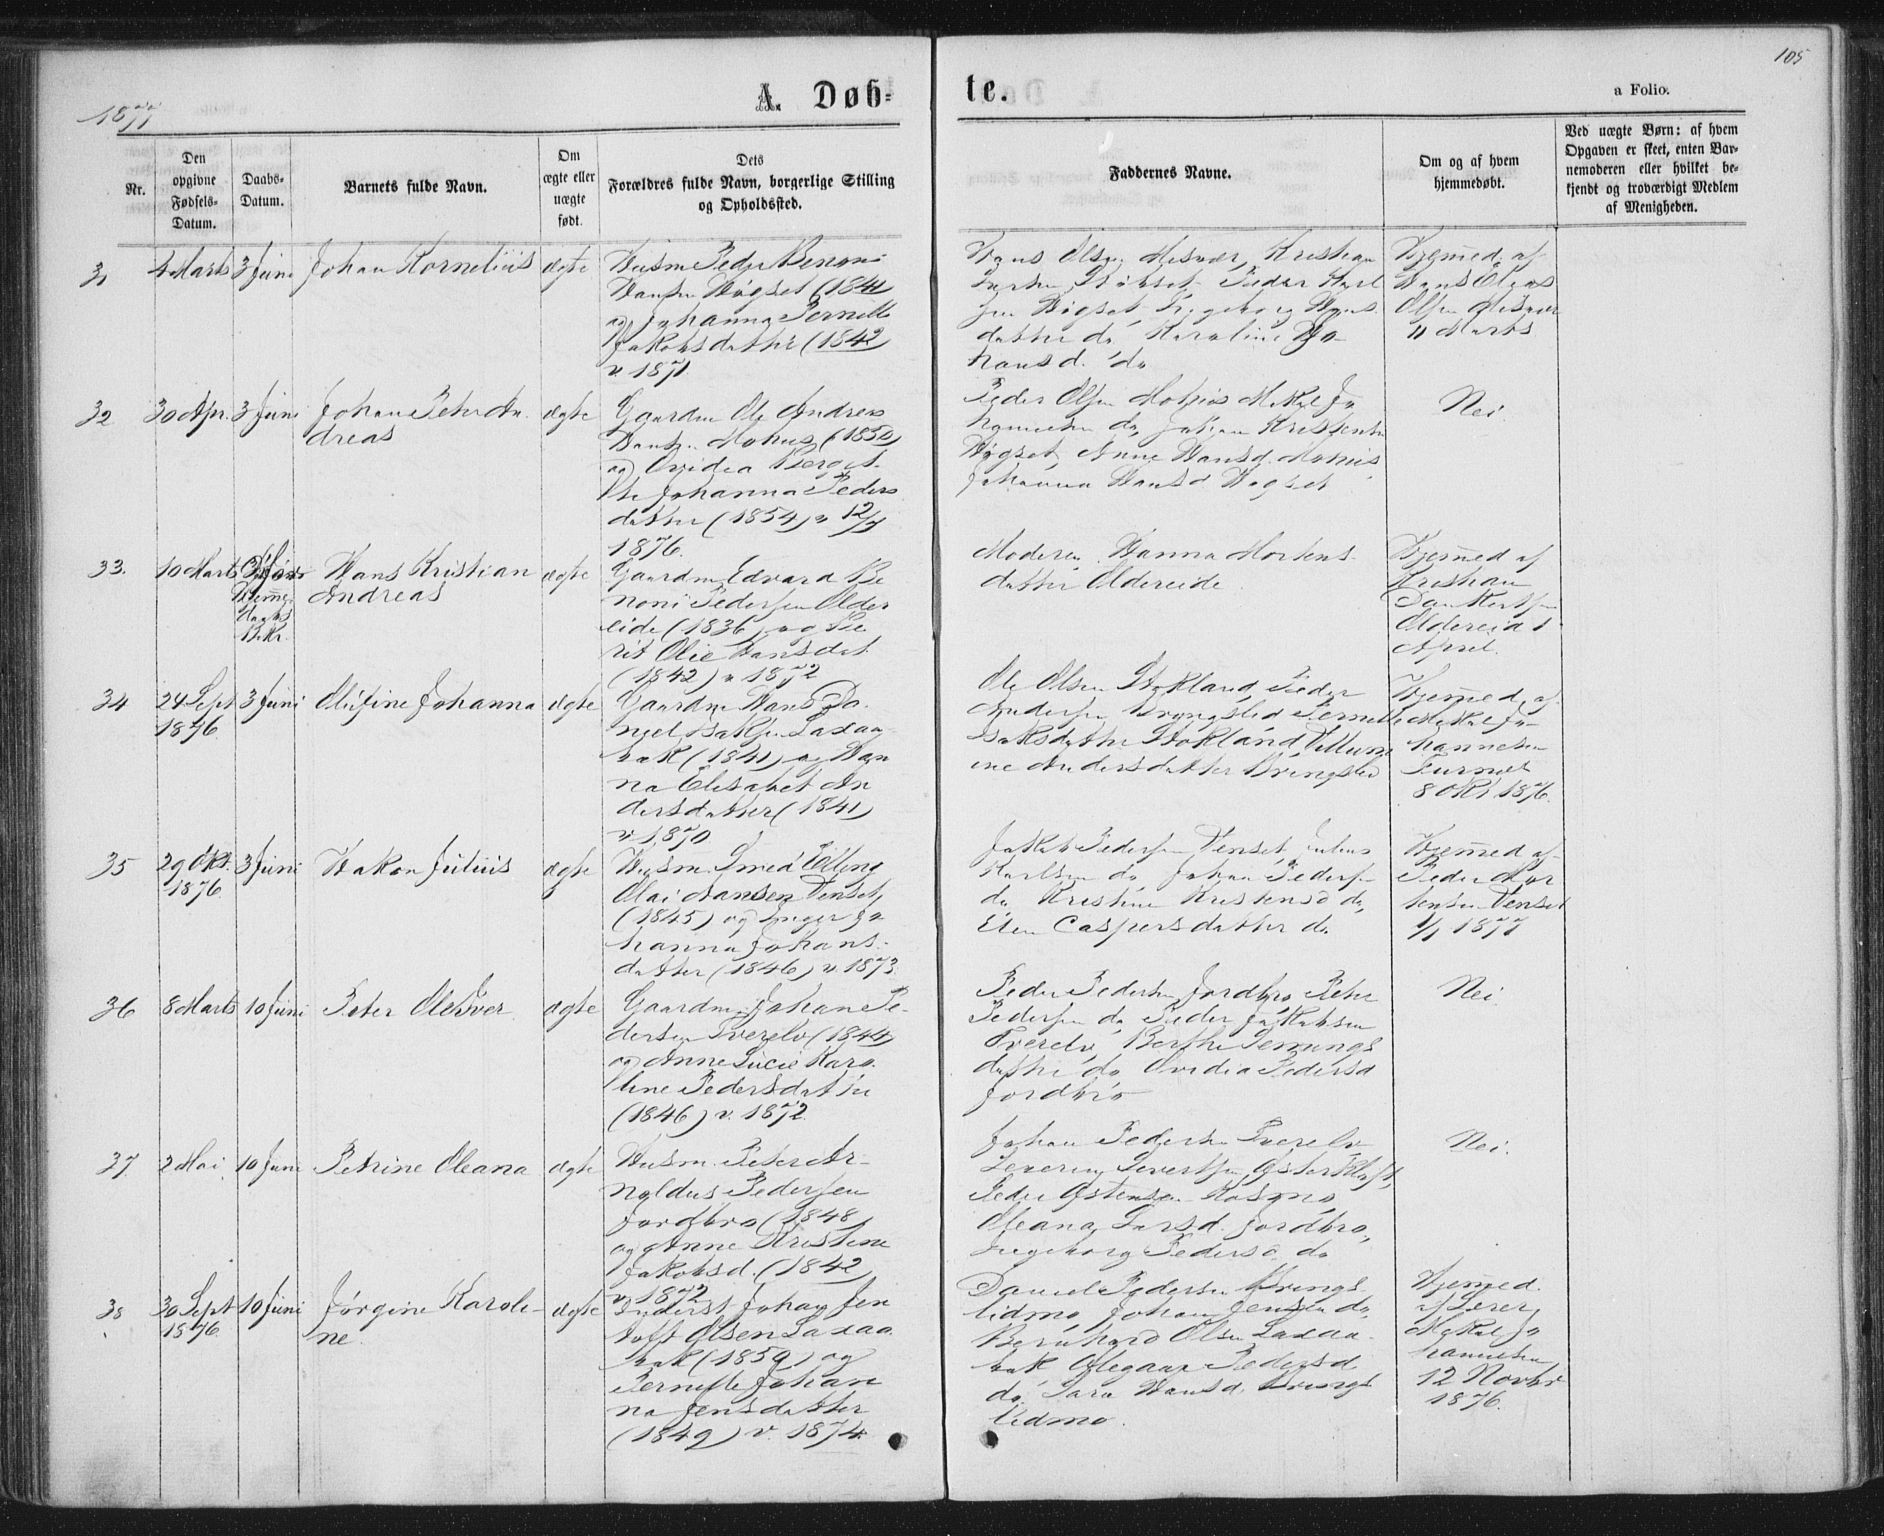 105
1877
A. Døb-
te.
a Folio.
Nr.
Den
opgivne
Fødsels-
Datum.
Daabs-
Datum.
Barnets fulde Navn.
Om
ægte eller
uægte
født.
Dets
Forældres fulde Navn, borgerlige Stilling
og Opholdssted.
Faddernes Navne.
Om og af hvem
hjemmedøbt.
Ved uægte Børn: af hvem
Opgaven er skeet, enten Bar-
nemoderen eller hvilket be-
kjendt og troværdigt Medlem
af Menigheden.
31
4 Marts
3 Juni
Johan Kornelius
ægte
Husm Peder Benoni
Hansen Høgset (1841
og Johanna Pernille
Jakobsdatter (1842
v. 1871.
Hans Olsen Misvær, Kristian
Høgset Ingeborg Hans
datter do Karoline Jo
hansd. do
Hjemmed. af
Hans Olaus
Olsen Misvær
11 Marts
32
30 Apr.
3 Juni
Johan Peter An
dreas
ægte
Gaardm Ole Andreas
Hansen Mohus (1850)
og Ovidia Berget
the Johanna Peders
datter (1854) v 12/7
1876.
Peder Olsen Mohus Mikal Jo
hannesen do, Johan Kristensen
Høgset, Anne Hansd. Mohus
Johanna Hansd Høgset
Nei
33.
10 Marts
3 Juni
Hjemme
daabs
Bekr.
Hans Kristian
Andreas
ægte
Gaardm Edvard Be
noni Pedersen Older
eide (1836) og Be
rit Olie Hansdat.
(1842) v 1872
Moderen, Hanna Mortens
datter Oldereide
Hjemmed af
Kristian
Dankertsen
Oldereid 1
April.
34
24 Sept
1876
3 Juni
Olufine Johanna
ægte
Gaardm Hans Da
niel Isaksen Laxaa
bak (1841) og Han
na Elisabet An
dersdatter (1841)
v 1870
Ole Olsen Stokland, Peder
Andersen Bringslid Pernille
Isaksdatter Stokland, Villum
ine Andersdatter Bringslid
Hjemmed. af
Mikal Jo
hannesen
Furnes
8 Okt 1876.
35
29 Okt.
1876
3 Juni
Hakon Julius
ægte
Husm. Smed Elling
Olai Hansen Venset,
(1845) og Inger Jo
hanna Johans-
datter (1846) v. 1873.
Jakob Pedersen Venset, Julius
Karlsen do Johan Pedersen
do Kristine Kristensd do,
Elen Caspersdatter do
Hjemmed af
Peder Mor
tensen Venset
1/1 1877
36
8 Marts
10 Juni
Peter Ole Iver
ægte
Gaardm Johan Pe-
dersen Tverelv (1844)
og Anne Lucie Karo
line Pedersdatter
(1846) v. 1872.
Peder Pedersen Jordbro Peter
Pedersen do Peder Jakobsen
Tverelv, Berthe Jennings
datter do Ovidia Pedersd
Jordbro
Nei
37.
2 Mai
10 Juni
Petrine Oleana
ægte
Husm. Peter Ar-
noldus Pedersen
Jordbro (1848)
og Anne Kristine
Jakobsd. (1842
v 1872
Johan Pedersen Tverelv
Severin Sivertsen Østerkløft,
Peder Østensen Kosmo,
Oleana Larsd. Jordbro,
Ingeborg Pedersd. do
Nei.
38
30 Sept
1876
10 Juni
Jørgine Karoli-
ne.
ægte
Inderst Johan Jen
toft Olsen Laxaa
bak (1859) og
Pernille Johan
na Jensdatter
(1849) v. 1874.
Daniel Pedersen Brings
lidmo, Johan Jensen do
Bernhard Olsen Laxaa-
bak Olegaar Pedersd
do, Sara Hansd. Brings
lidmo.
Hjemmed.
af Lærer
Mikal Jo
hannesen
12 Novbr
1876.